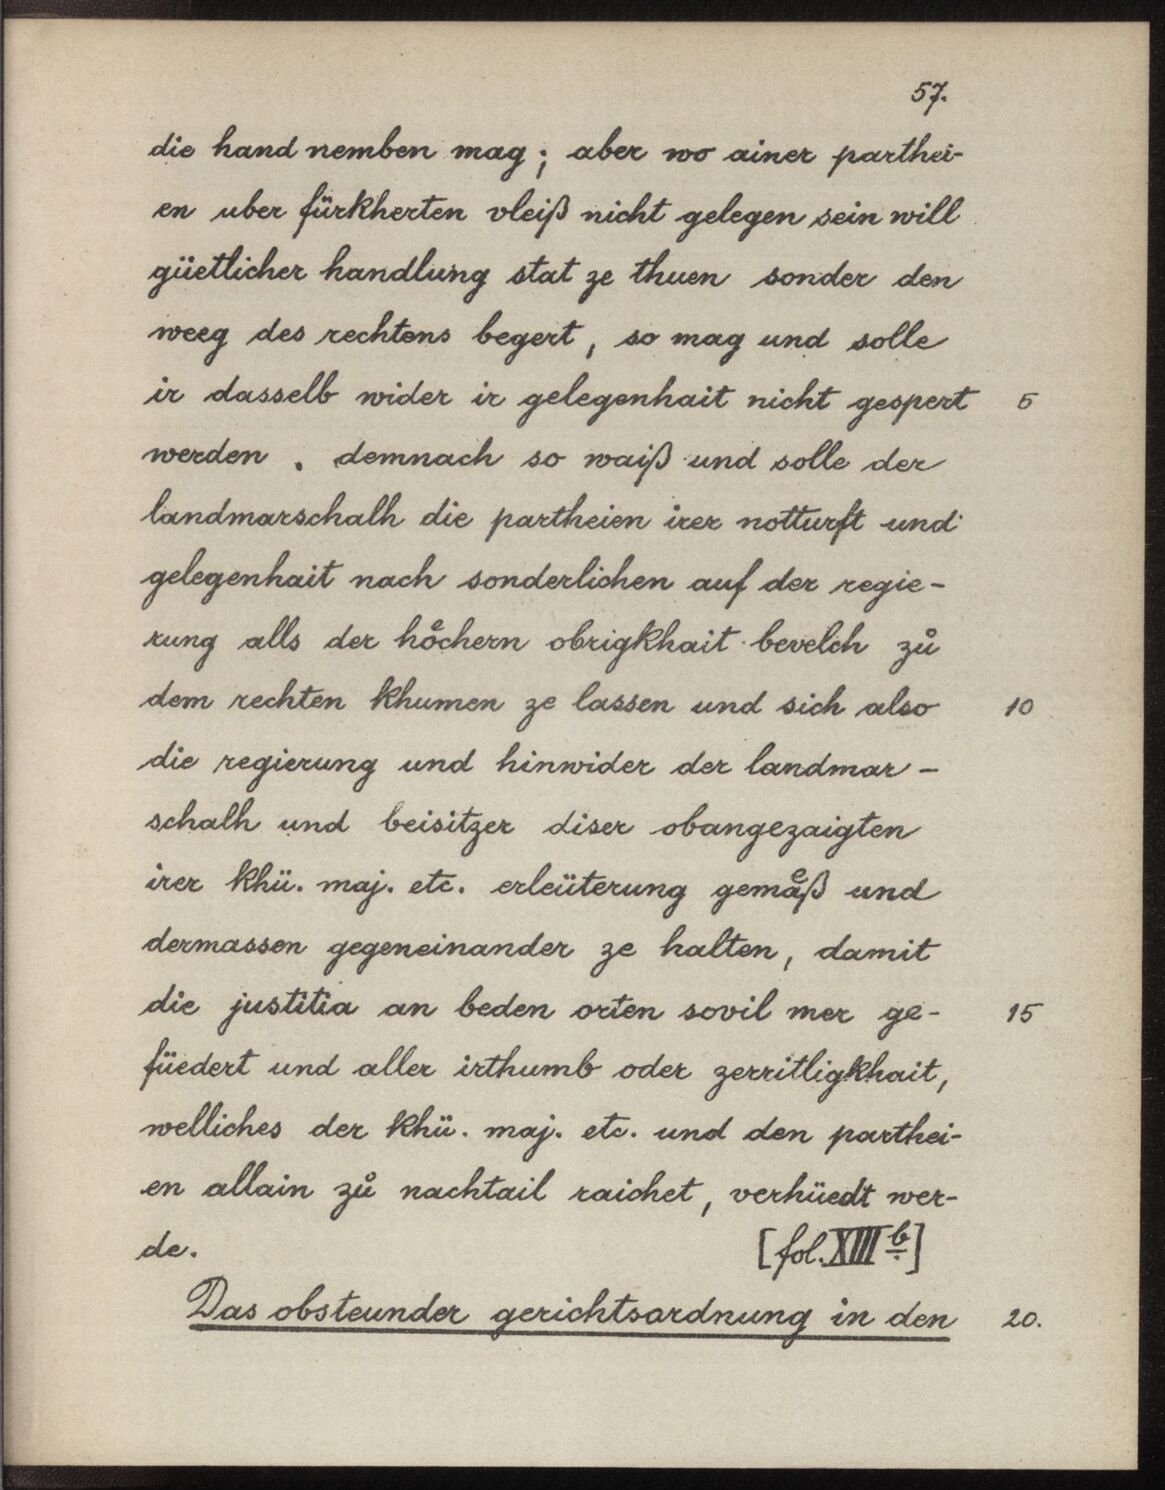 57.
die hand nemben mag; aber wo ainer parthei-
en uber fürkherten vleiß nicht gelegen sein will
güetlicher handlung stat ze thuen sonder den
weeg des rechtens begert, so mag und solle
ir dasselb wider ir gelegenhait nicht gespert 5
werden. demnach so waiß und solle der
landmarschalh die partheien irer notturft und
gelegenhait nach sonderlichen auf der regie-
rung alls der hoͤchern obrigkhait bevelch zů
dem rechten khumen ze lassen und sich also 10
die regierung und hinwider der landmar-
schalh und beisitzer diser obangezaigten
irer khü. maj. etc. erleüterung gemaͤß und
dermassen gegeneinander ze halten, damit
die justitia an beden orten sovil mer ge- 15
füedert und aller irthumb oder zerritligkhait,
welliches der khü. maj. etc. und den parthei-
en allain zů nachtail raichet, verhüedt wer-
de. [fol. XIII b]
Das obsteunder gerichtsordnung in den 20.